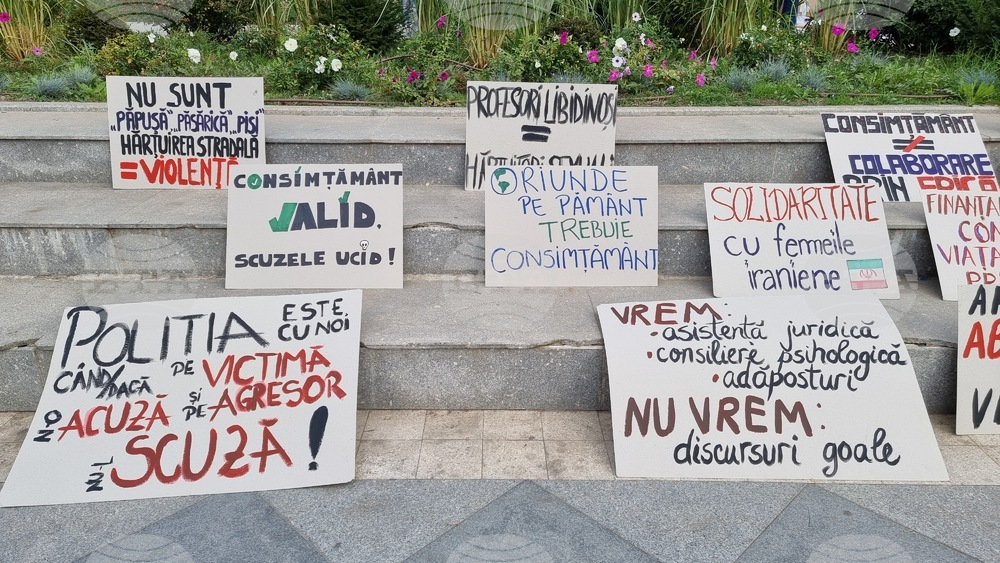 NU SUNT
"PĂPUȘĂ"..."PĂSĂRICĂ"..."PISI"
HĂRȚUIREA STRADALĂ
= VIOLENȚĂ
PROFESORI LIBIDINOȘI
=
CONSIMȚĂMÂNT
≠
COLABORARE
PRIN FRICĂ
CONSIMȚĂMÂNT
VALID.
SCUZELE UCID!
ORIUNDE
PE PĂMÂNT
TREBUIE
CONSIMȚĂMÂNT
SOLIDARITATE
CU femeile
iraniene
POLIȚIA ESTE CU NOI
CÂND/DACĂ
NO ACUZĂ PE VICTIMĂ
ȘI PE AGRESOR
NU-L SCUZĂ!
VREM:
• asistență juridică
• consiliere psihologică
• adăposturi
NU VREM:
discursuri goale